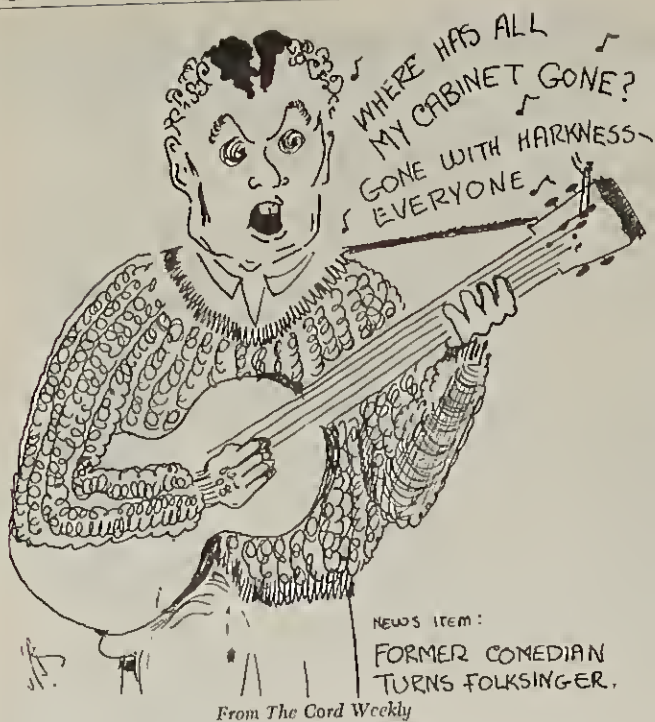 WHERE HAS ALL
MY CABINET GONE?
GONE WITH HARKNESS~
EVERYONE
NEWS ITEM:
FORMER COMEDIAN
TURNS FOLKSINGER.
From The Cord Weekly